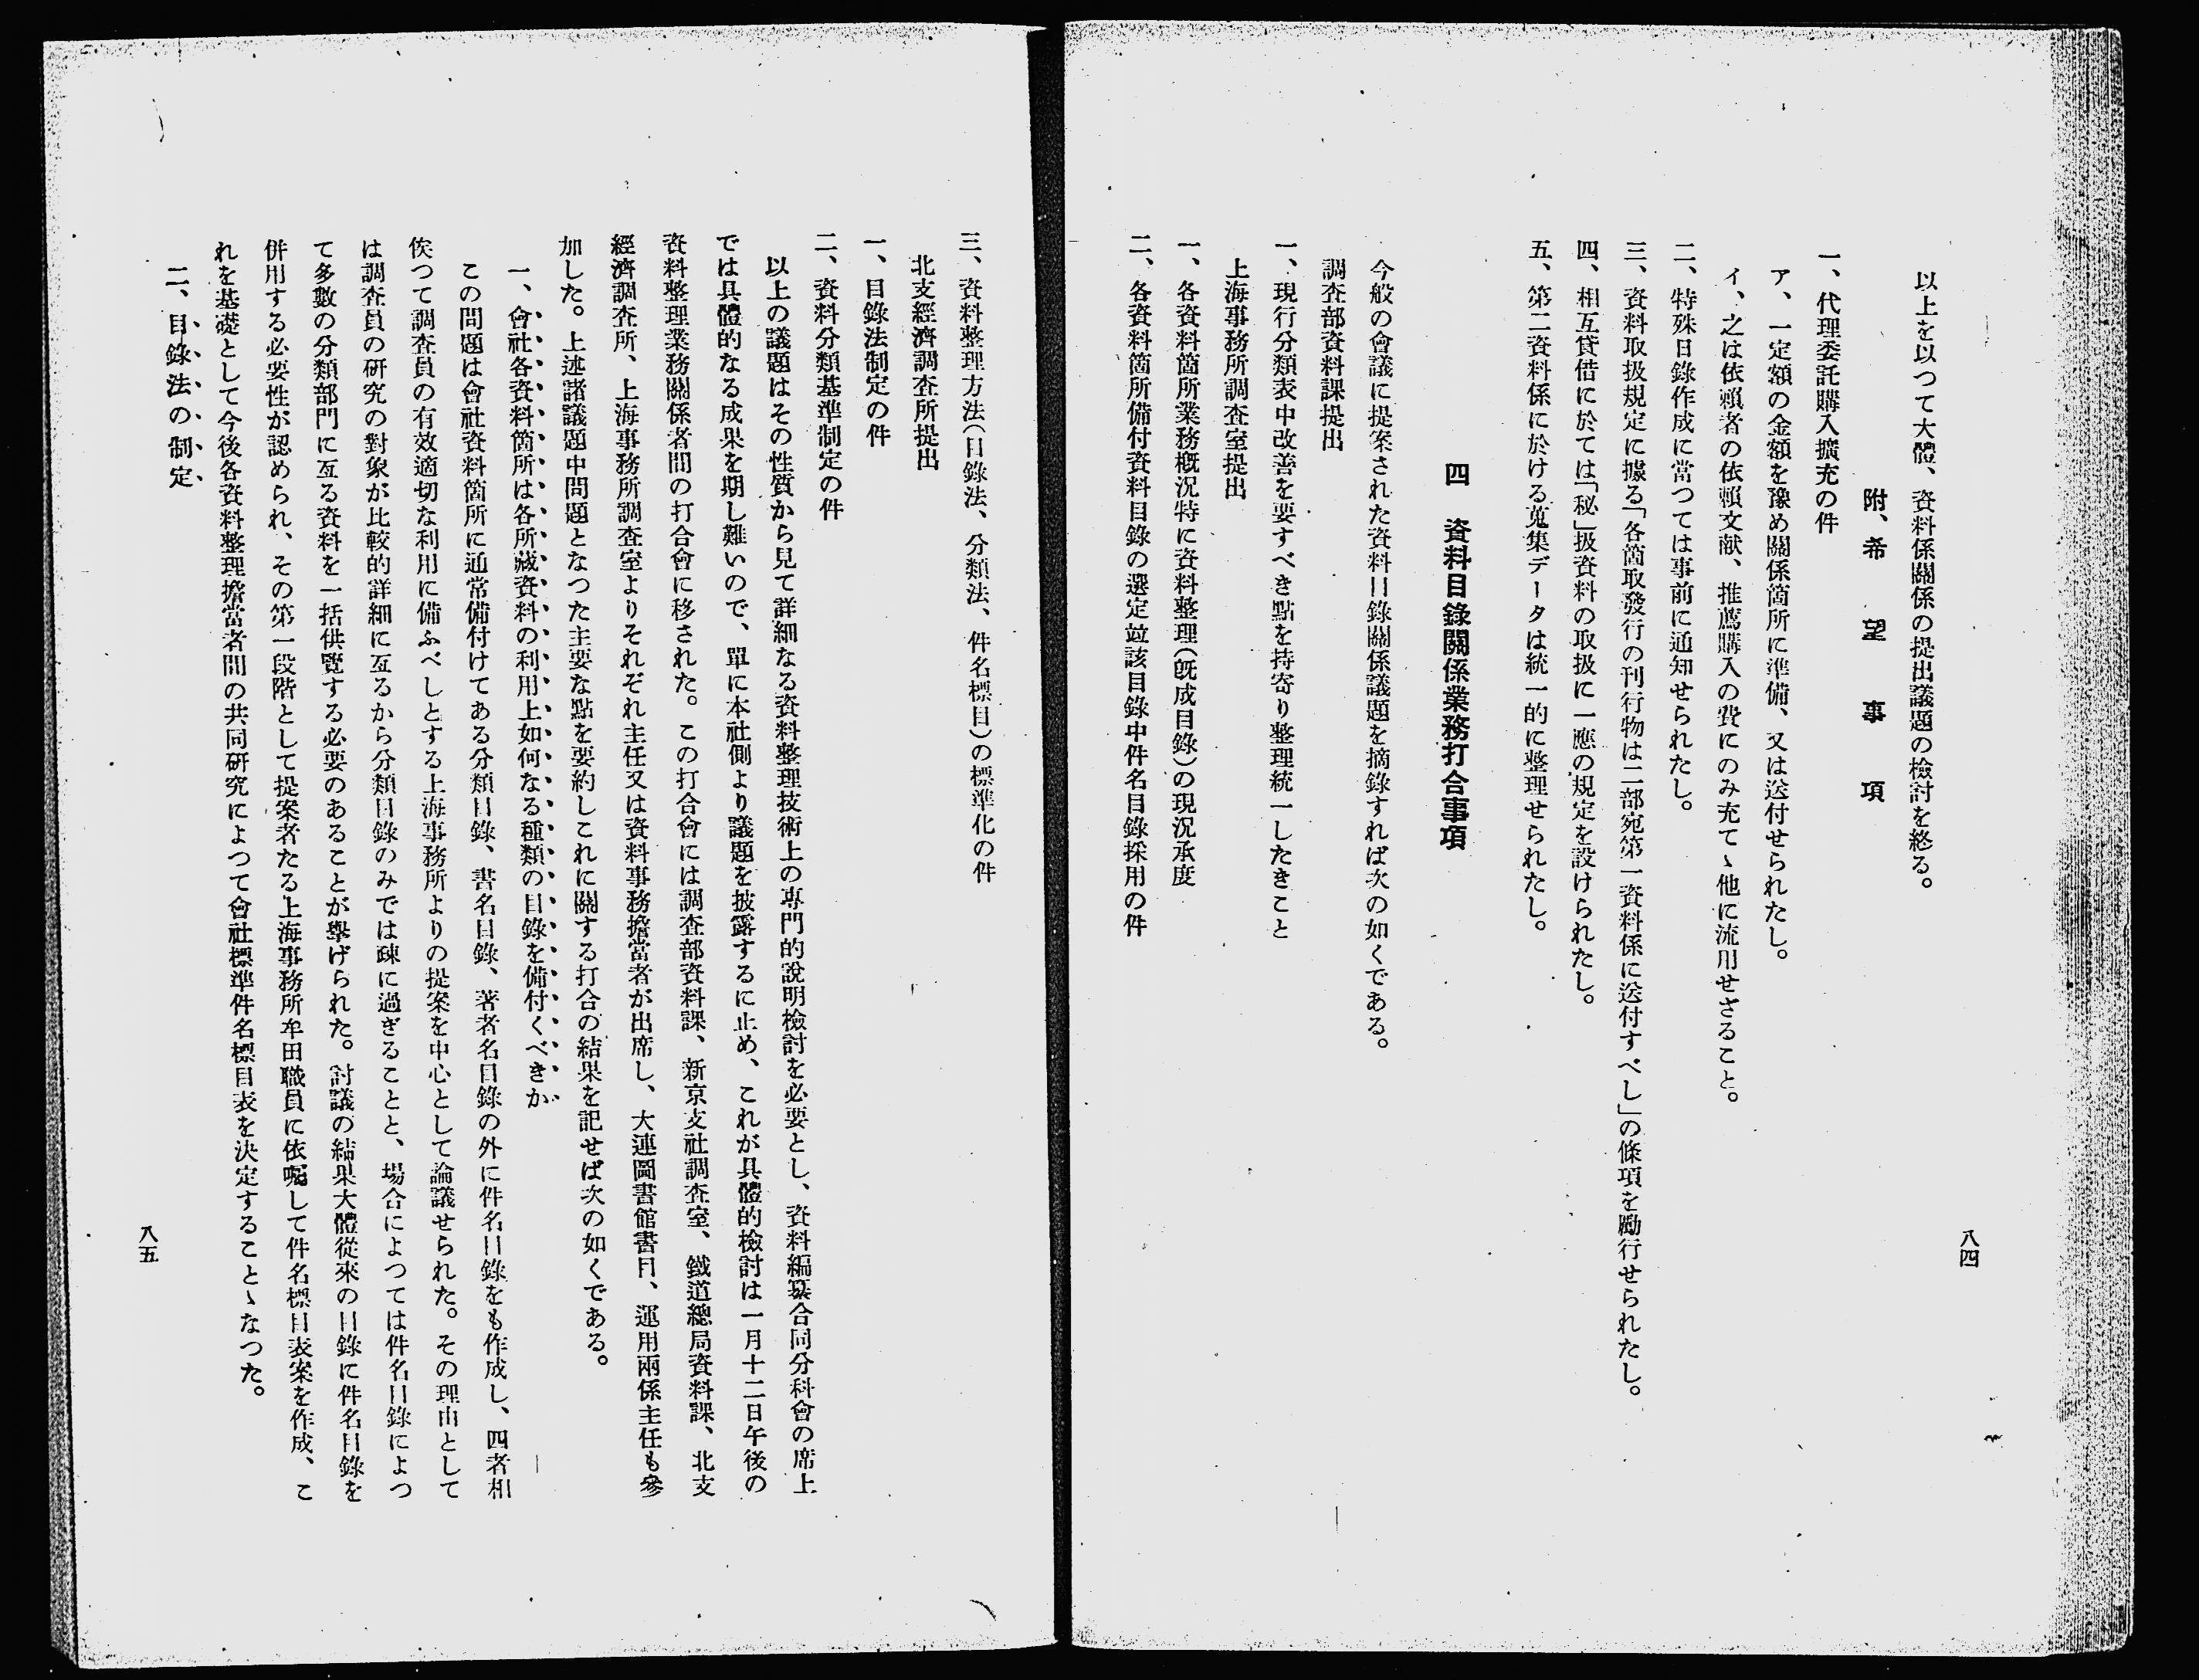 以上を以つて大體、資料係關係の提出議題の檢討を終る。
附、希望事項
一、代理委託購入擴充の件
ア、一定額の金額を豫め關係箇所に準備、又は送付せられたし。
イ、之は依賴者の依賴文献、推薦購入の費にのみ充てゝ他に流用せざること。
二、特殊目錄作成に當つては事前に通知せられたし。
三、資料取扱規定に據る「各箇取發行の刊行物は二部宛第一資料係に送付すべし」の條項を勵行せられたし。
四、相互貸借に於ては「秘」扱資料の取扱に一應の規定を設けられたし。
五、第二資料係に於ける蒐集データは統一的に整理せられたし。
四　資料目錄關係業務打合事項
今般の會議に提案された資料目錄關係議題を摘錄すれば次の如くである。
調査部資料課提出
一、現行分類表中改善を要すべき點を持寄り整理統一したきこと
上海事務所調査室提出
一、各資料箇所業務槪況特に資料整理（旣成目錄）の現況承度
二、各資料箇所備付資料目錄の選定竝該目錄中件名目錄採用の件
八四
三、資料整理方法（目錄法、分類法、件名標目）の標準化の件
北支經濟調査所提出
一、目錄法制定の件
二、資料分類基準制定の件
以上の議題はその性質から見て詳細なる資料整理技術上の專門的說明檢討を必要とし、資料編纂合同分科會の席上
では具體的なる成果を期し難いので、單に本社側より議題を披露するに止め、これが具體的檢討は一月十二日午後の
資料整理業務關係者間の打合會に移された。この打合會には調査部資料課、新京支社調査室、鐵道總局資料課、北支
經濟調査所、上海事務所調査室よりそれぞれ主任又は資料事務擔當者が出席し、大連圖書館書目、運用兩係主任も參
加した。上述諸議題中問題となつた主要な點を要約しこれに關する打合の結果を記せば次の如くである。
一、會社各資料箇所は各所藏資料の利用上如何なる種類の目錄を備付くべきか
この問題は會社資料箇所に通常備付けてある分類目錄、書名目錄、著者名目錄の外に件名目錄をも作成し、四者相
俟つて調査員の有效適切な利用に備ふべしとする上海事務所よりの提案を中心として論議せられた。その理由として
は調査員の研究の對象が比較的詳細に亙るから分類目錄のみでは疎に過ぎることと、場合によつては件名目錄によつ
て多數の分類部門に亙る資料を一括供覽する必要のあることが擧げられた。討議の結果大體從來の目錄に件名目錄を
併用する必要性が認められ、その第一段階として提案者たる上海事務所牟田職員に依囑して件名標目表案を作成、こ
れを基礎として今後各資料整理擔當者間の共同硏究によつて會社標準件名標目表を決定することゝなつた。
二、目錄法の制定
八五